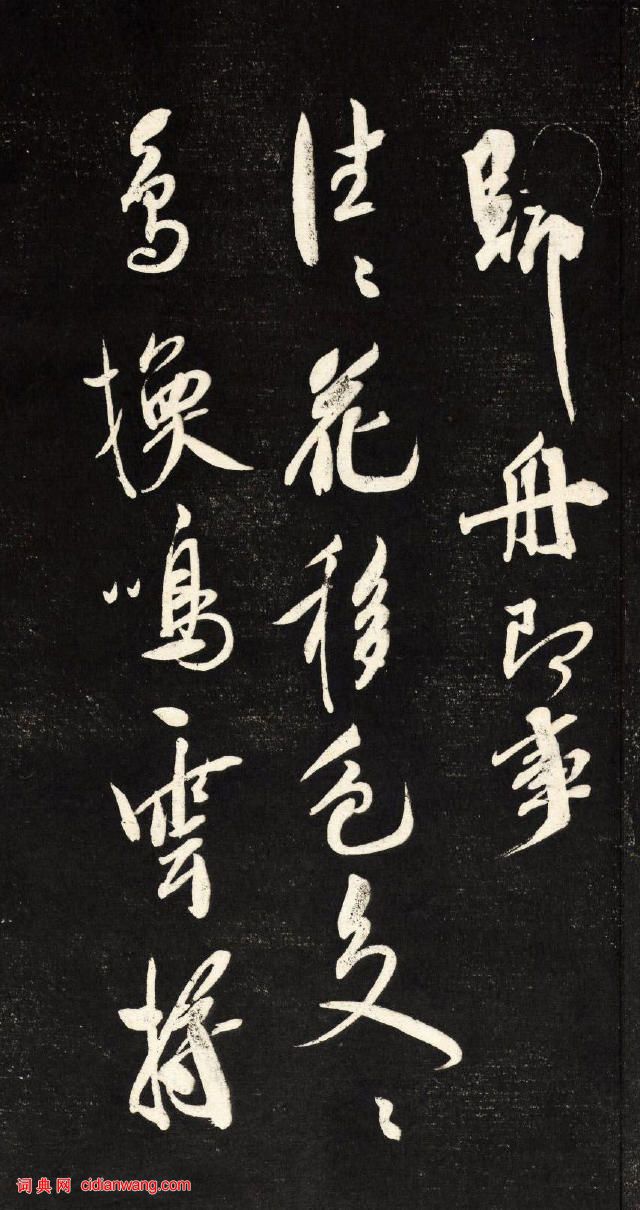 歸舟即事
往〻花移色処〻
鳥換鳴雲將
词典网 cidianwang.com